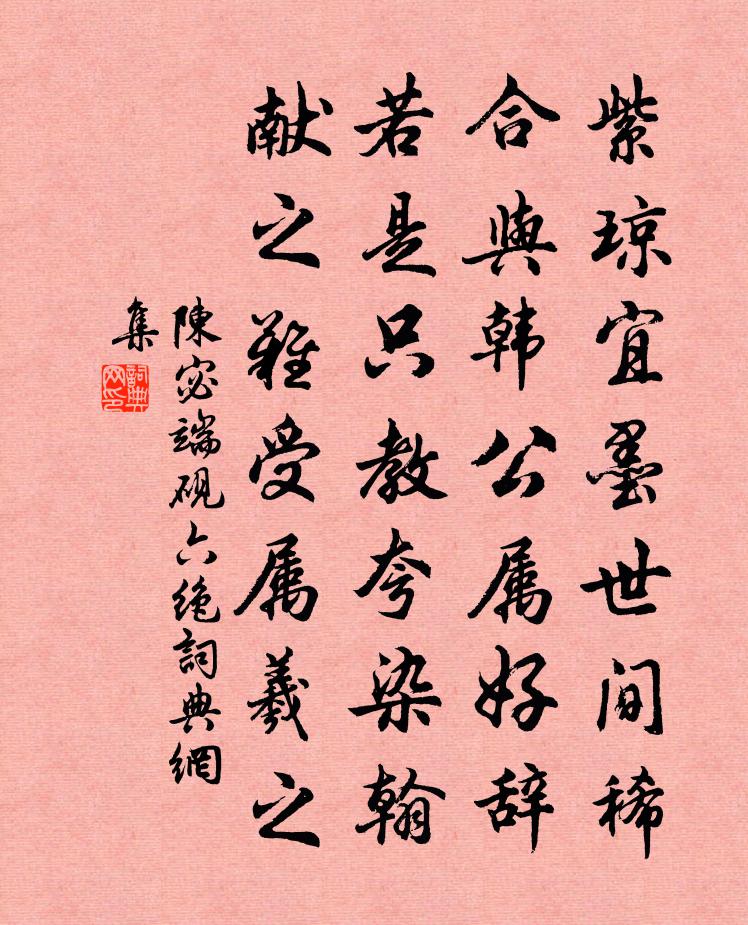 紫琼宜墨世间稀
合與韩公属好辞
若是只教夸染翰
献之难受属羲之
陳宓端硯六绝詞典網
集
詞典网印